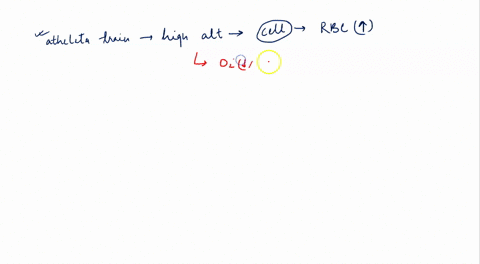 atheleta train → high alt → cell → RBC (↑)
↳ O₂ (↓)